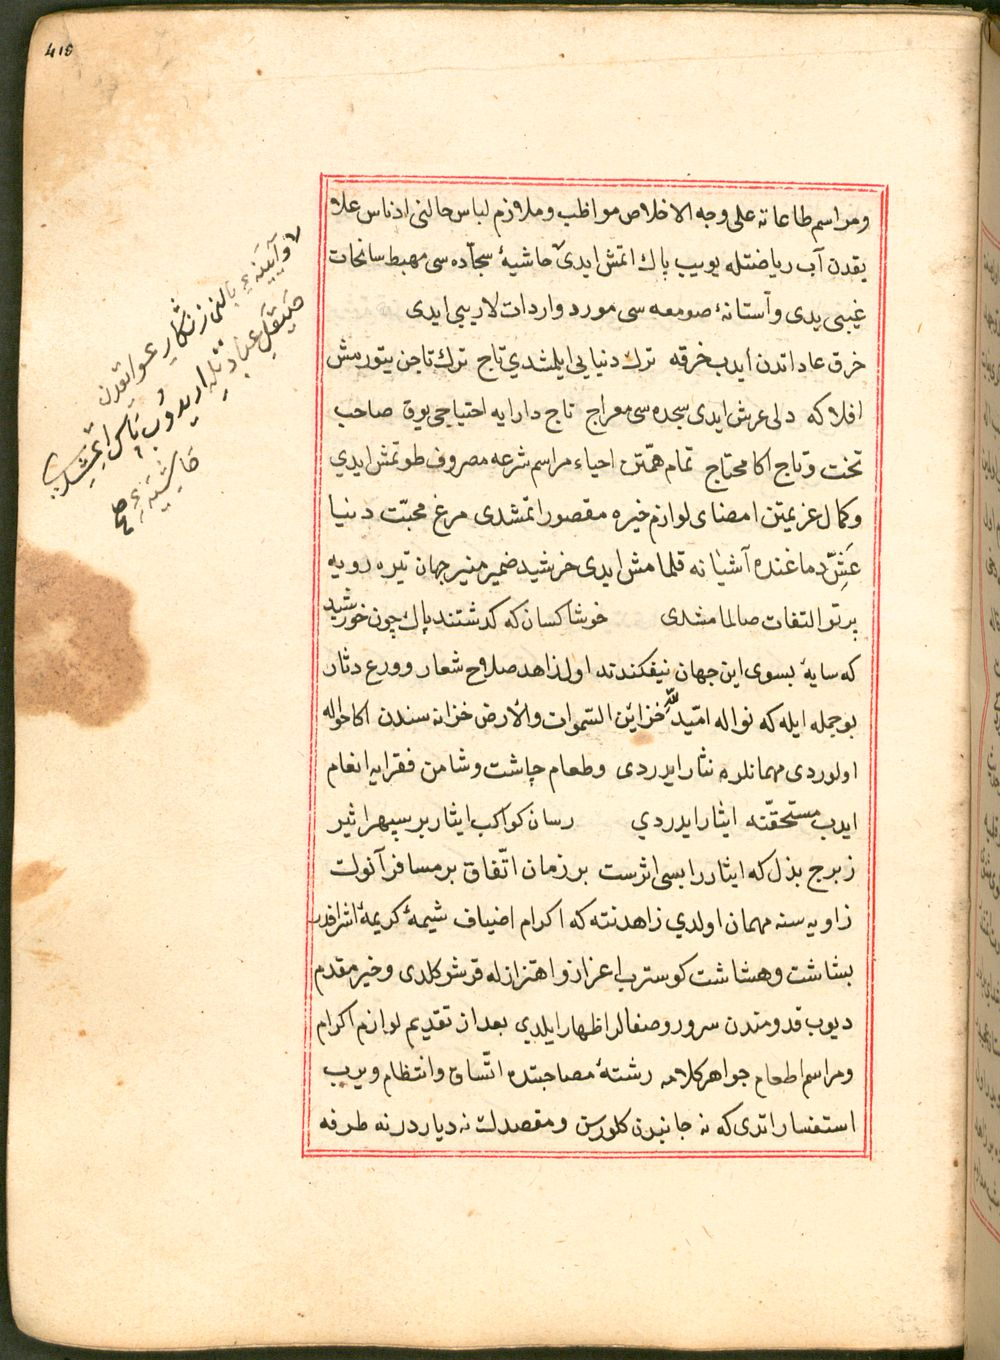 415
ومراسم طاعاته على وجه الاخلاص مواظب وملازم لباس حالنى ادناس علا
يقدن آب رياضتله يويب پاك اتمش ايدى حاشيهٔ سجّاده سى مهبط سانحات
غيبى يدى وآستانهٔ صومعه سى مورد واردات لاريبى ايدى
خرق عاداتدن ايدب خرقه ترك دنيايى ايلمشدي تاج ترك تاجن يتورمش
افلاكه دلى عرش ايدى سجده سى معراج تاج دارايه احتياجى يوق صاحب
تخت وتاج اكا محتاج تمام همّتن احياء مراسم شرعه مصروف طوتمش ايدي
وكمال عزيمتن امضاى لوازم خيره مقصور اتمشدى مرغ محبّت دنيا
عشّ دماغنده آشيانه قلمامش ايدى خرشيد ضمير منير جهان تيره رويه
پرتو التفات صالمامشدى خوشا كسان كه كذشتند پاك چون خورشيد
كه سايهٔ بسوى اين جهان نيفكندند اول زاهد صلاح شعار وورع دثار
بوجمله ايله كه نواله اميد لله خزائن السّموات والارض خزانه سندن اكا حواله
اولوردى مهمانلره نثار ايدردى وطعام چاشت وشامن فقرايه انعام
ايدب مستحقّنه ايثار ايدردي رسان كواكب ايثار بر سپهر اثير
ز برج بذل كه ايثار را بسى اثرست بر زمان اتّفاق بر مسافر آنوك
زاويه سنه مهمان اولدي زاهد نته كه اكرام اضياف شيمهٔ كريمهٔ اشرافدر
بشاشت وهشاشت كوسترب اعزاز واهتزازله قرشو كلدى وخير مقدم
ديوب قدومندن سرور وصفالر اظهار ايلدي بعد از تقديم لوازم اكرام
ومراسم اطعام جواهر كلامه رشتهٔ مصاحبتده اتّساق وانتظام ويرب
استفسار اتدى كه نه جانبدن كلورسن ومقصدك نه دياردر نه طرفه
زنكار عوايقدن
صيقل عبادتله اريدوب پاك ايتمشدى
صح